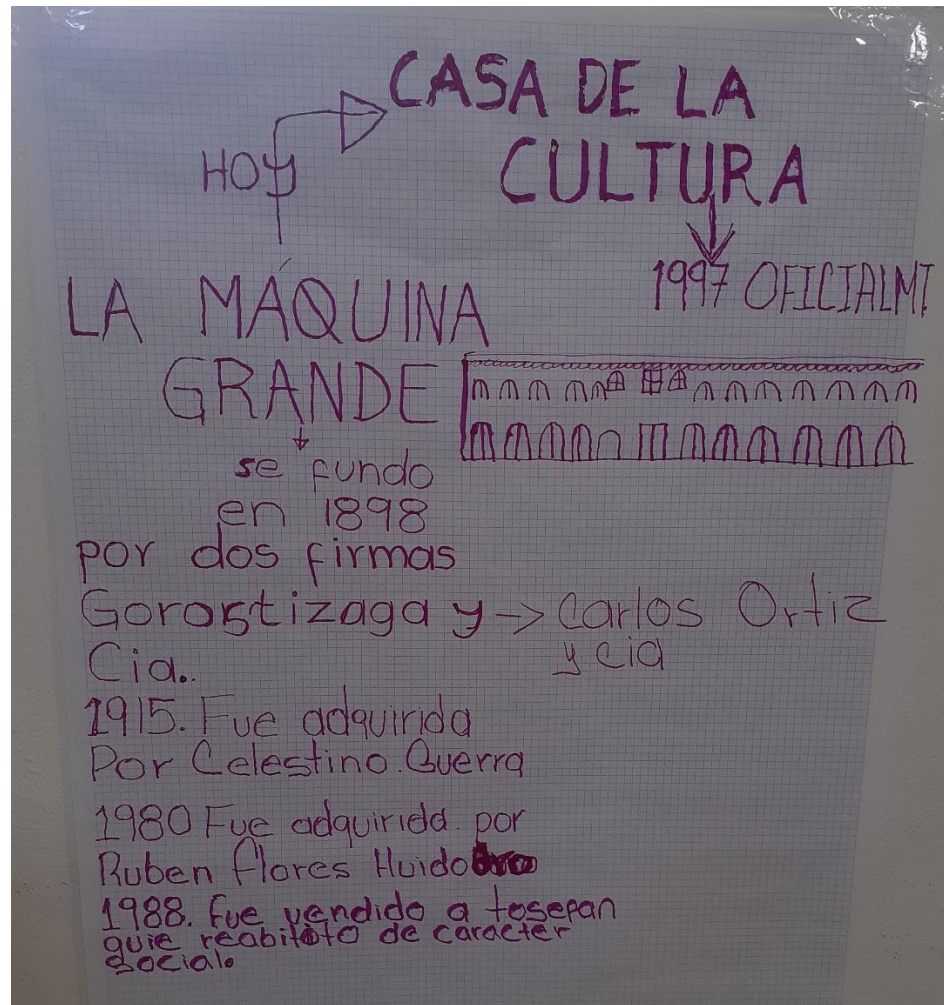 CASA DE LA
CULTURA
HOY
1997 OFICIALMT
LA MÁQUINA
GRANDE
se fundo
en 1898
por dos firmas
Gorostizaga y → Carlos Ortiz
Cia.. y cia
1915. Fue adquirida
Por Celestino Guerra
1980 Fue adquirida por
Ruben flores Huidobro
1988. fue vendido a tosepan
quie reabilito de caracter
social.